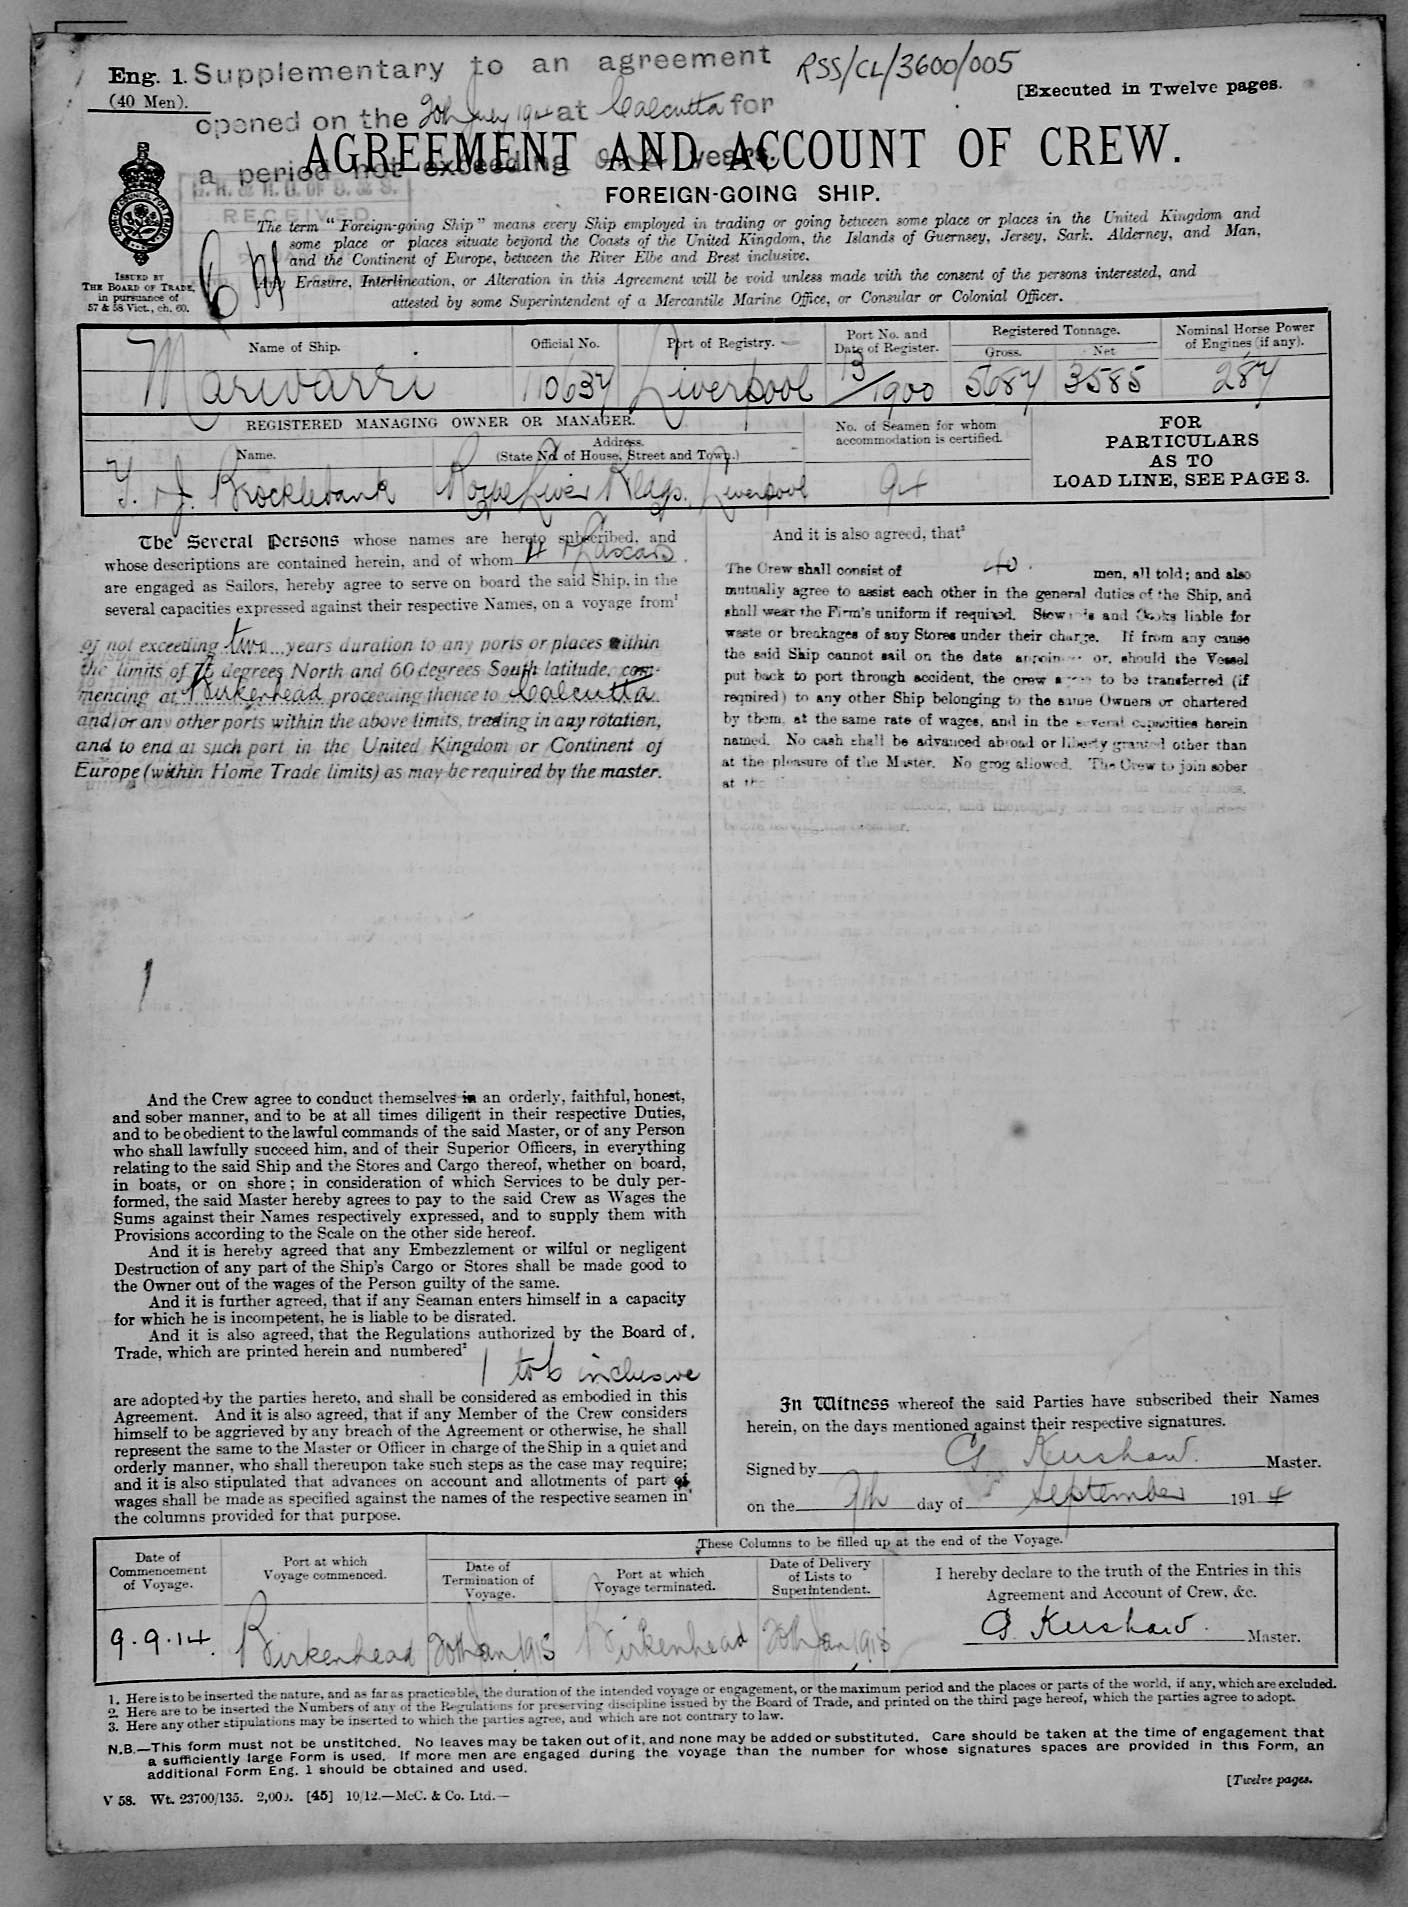 Eng. 1. Supplementary to an agreement RSS/CL/3600/005
(40 Men). [Executed in Twelve pages.
opened on the 20th July 1914 at Calcutta for
a period not exceeding years.
AGREEMENT AND ACCOUNT OF CREW.
FOREIGN-GOING SHIP.
RECEIVED
ISSUED BY
THE BOARD OF TRADE,
in pursuance of
57 & 58 Vict., ch. 60.
The term "Foreign-going Ship" means every Ship employed in trading or going between some place or places in the United Kingdom and
some place or places situate beyond the Coasts of the United Kingdom, the Islands of Guernsey, Jersey, Sark, Alderney, and Man,
and the Continent of Europe, between the River Elbe and Brest inclusive.
Any Erasure, Interlineation, or Alteration in this Agreement will be void unless made with the consent of the persons interested, and
attested by some Superintendent of a Mercantile Marine Office, or Consular or Colonial Officer.
Name of Ship. Official No. Port of Registry. Port No. and Date of Register. Registered Tonnage. Gross. Net Nominal Horse Power of Engines (if any).
Marwarri 110637 Liverpool 13/1900 5687 3585 287
REGISTERED MANAGING OWNER OR MANAGER.
Name. Address. (State No. of House, Street and Town.)
No. of Seamen for whom accommodation is certified.
T. & J. Brocklebank Royal Liver Bldgs. Liverpool 94
FOR
PARTICULARS
AS TO
LOAD LINE, SEE PAGE 3.
The Several Persons whose names are hereto subscribed, and
whose descriptions are contained herein, and of whom 4 Lascars
are engaged as Sailors, hereby agree to serve on board the said Ship, in the
several capacities expressed against their respective Names, on a voyage from¹
of not exceeding two years duration to any ports or places within
the limits of 75 degrees North and 60 degrees South latitude, com-
mencing at Birkenhead proceeding thence to Calcutta
and/or any other ports within the above limits, trading in any rotation,
and to end at such port in the United Kingdom or Continent of
Europe (within Home Trade limits) as may be required by the master.
And the Crew agree to conduct themselves in an orderly, faithful, honest,
and sober manner, and to be at all times diligent in their respective Duties,
and to be obedient to the lawful commands of the said Master, or of any Person
who shall lawfully succeed him, and of their Superior Officers, in everything
relating to the said Ship and the Stores and Cargo thereof, whether on board,
in boats, or on shore; in consideration of which Services to be duly per-
formed, the said Master hereby agrees to pay to the said Crew as Wages the
Sums against their Names respectively expressed, and to supply them with
Provisions according to the Scale on the other side hereof.
And it is hereby agreed that any Embezzlement or wilful or negligent
Destruction of any part of the Ship's Cargo or Stores shall be made good to
the Owner out of the wages of the Person guilty of the same.
And it is further agreed, that if any Seaman enters himself in a capacity
for which he is incompetent, he is liable to be disrated.
And it is also agreed, that the Regulations authorized by the Board of
Trade, which are printed herein and numbered²
1 to 6 inclusive
are adopted by the parties hereto, and shall be considered as embodied in this
Agreement. And it is also agreed, that if any Member of the Crew considers
himself to be aggrieved by any breach of the Agreement or otherwise, he shall
represent the same to the Master or Officer in charge of the Ship in a quiet and
orderly manner, who shall thereupon take such steps as the case may require;
and it is also stipulated that advances on account and allotments of part of
wages shall be made as specified against the names of the respective seamen in
the columns provided for that purpose.
And it is also agreed, that³
The Crew shall consist of 40 men, all told; and also
mutually agree to assist each other in the general duties of the Ship, and
shall wear the Firm's uniform if required. Stewards and Cooks liable for
waste or breakages of any Stores under their charge. If from any cause
the said Ship cannot sail on the date appointed or, should the Vessel
put back to port through accident, the crew agree to be transferred (if
required) to any other Ship belonging to the same Owners or chartered
by them, at the same rate of wages, and in the several capacities herein
named. No cash shall be advanced abroad or liberty granted other than
at the pleasure of the Master. No grog allowed. The Crew to join sober
at the
In Witness whereof the said Parties have subscribed their Names
herein, on the days mentioned against their respective signatures.
Signed by G Kershaw. Master.
on the 7th day of September 1914
These Columns to be filled up at the end of the Voyage.
Date of Commencement of Voyage. Port at which Voyage commenced. Date of Termination of Voyage. Port at which Voyage terminated. Date of Delivery of Lists to Superintendent.
I hereby declare to the truth of the Entries in this
Agreement and Account of Crew, &c.
9.9.14. Birkenhead 20th Jan 1915 Birkenhead 20th Jan 1915 G. Kershaw. Master.
1. Here is to be inserted the nature, and as far as practicable, the duration of the intended voyage or engagement, or the maximum period and the places or parts of the world, if any, which are excluded.
2. Here are to be inserted the Numbers of any of the Regulations for preserving discipline issued by the Board of Trade, and printed on the third page hereof, which the parties agree to adopt.
3. Here any other stipulations may be inserted to which the parties agree, and which are not contrary to law.
N.B.—This form must not be unstitched. No leaves may be taken out of it, and none may be added or substituted. Care should be taken at the time of engagement that
a sufficiently large Form is used. If more men are engaged during the voyage than the number for whose signatures spaces are provided in this Form, an
additional Form Eng. 1 should be obtained and used.
[Twelve pages.
V 58. Wt. 23700/135. 2,000. [45] 10/12.—McC. & Co. Ltd.—